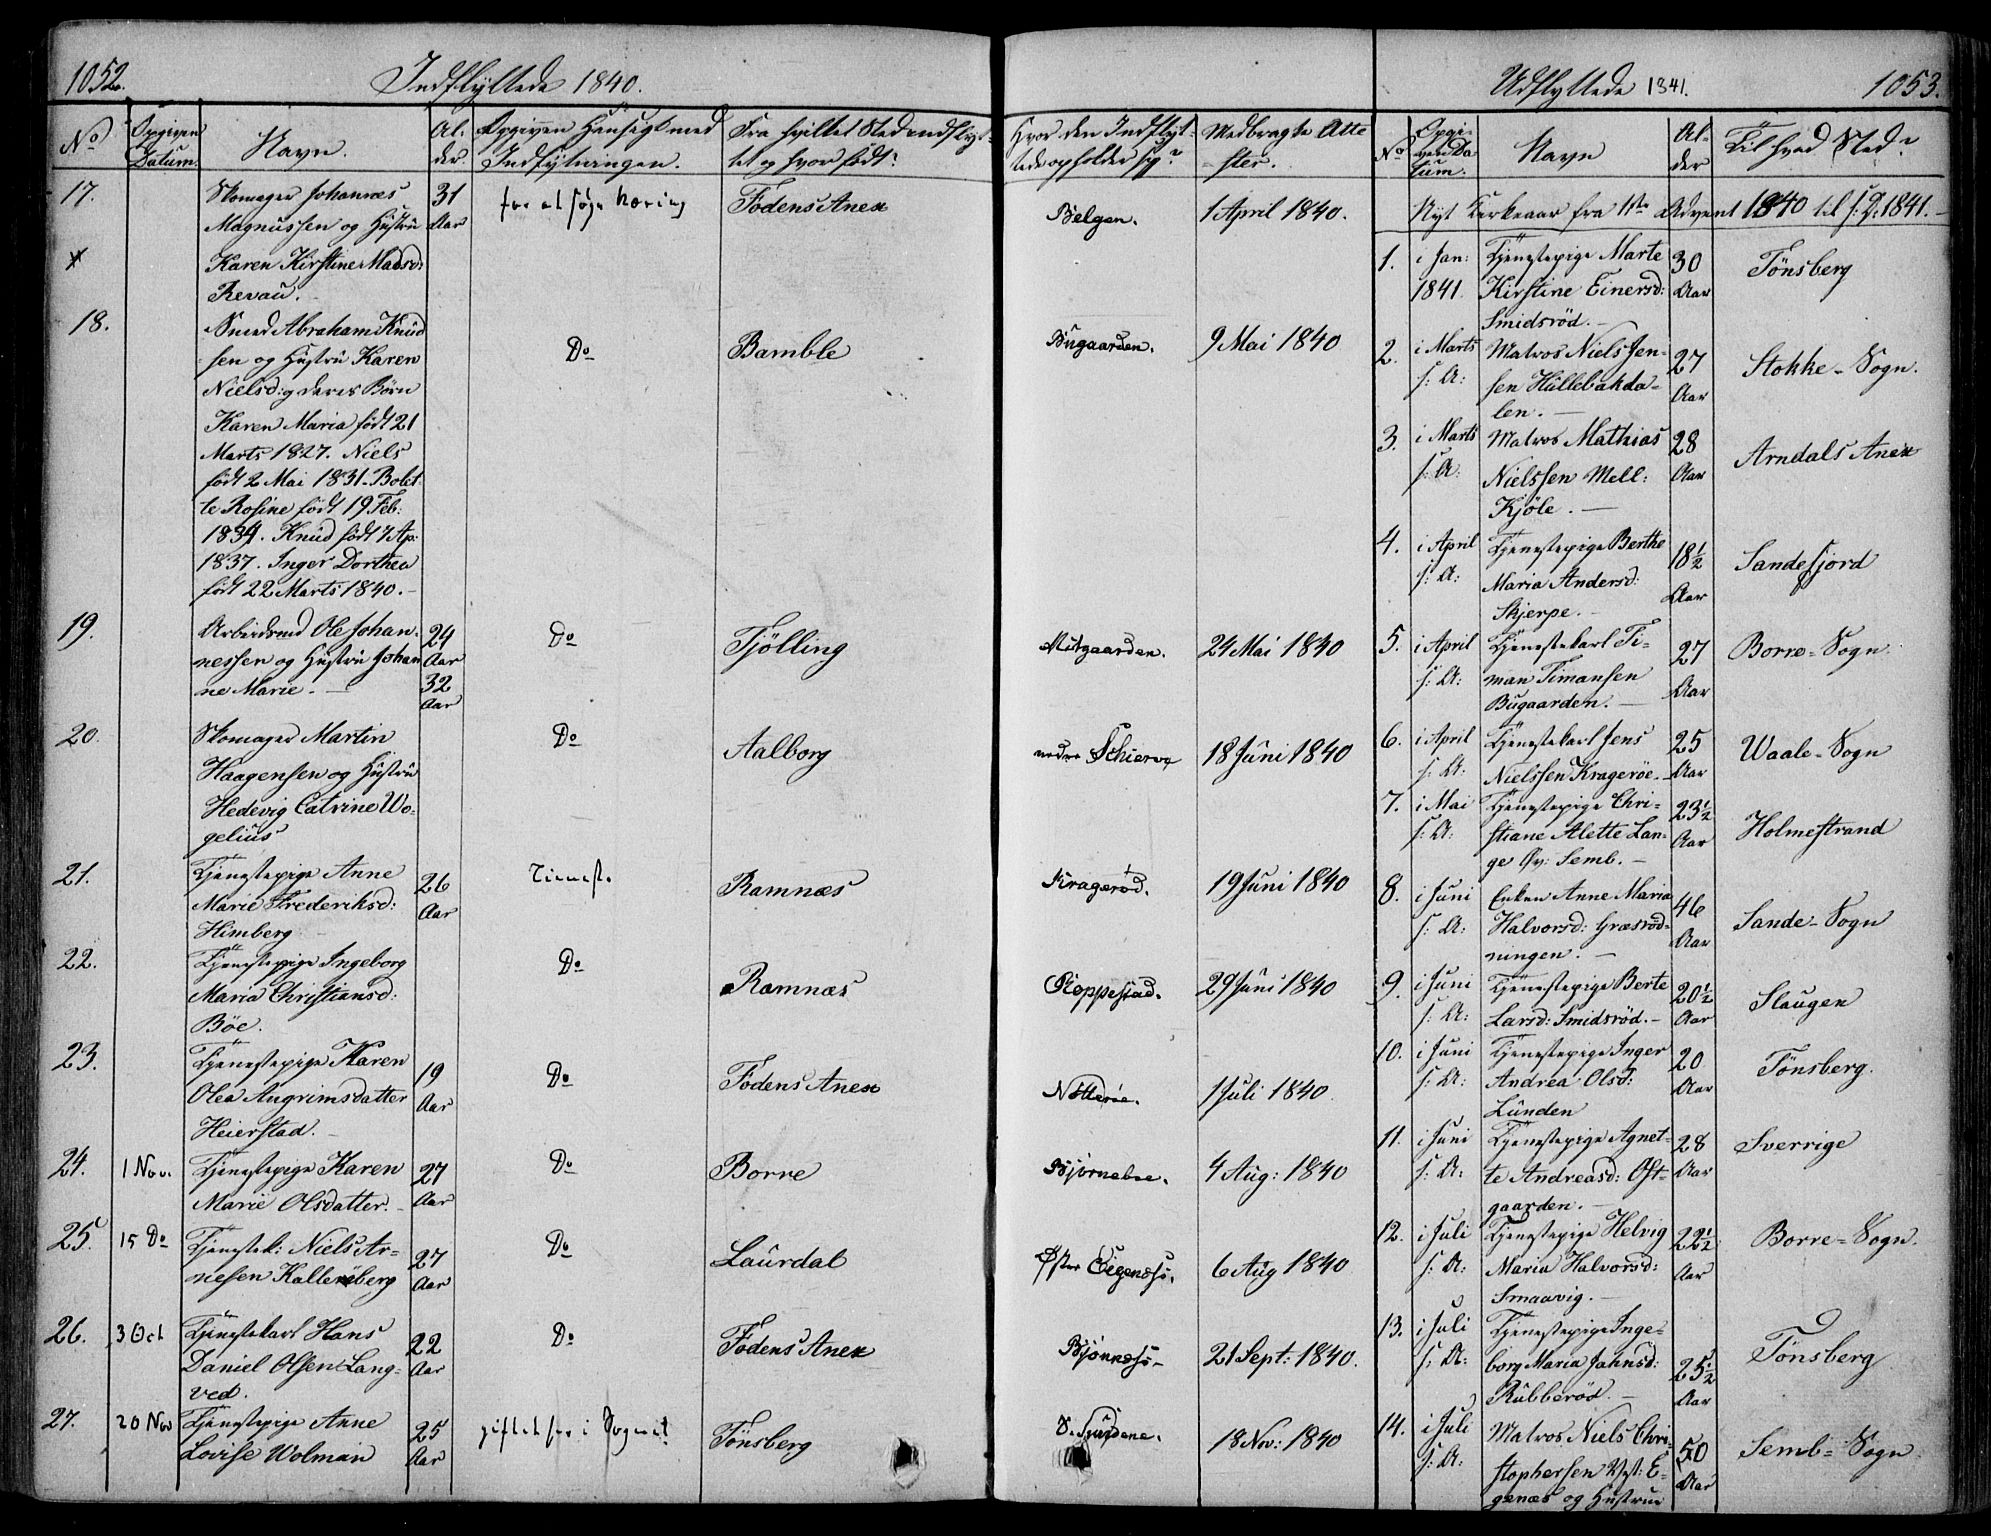 1052.
Indflyttede 1840.
No
Opgiven Datum.
Navn.
Alder.
Opgiven Hensigt med Indflytningen.
Fra hvilket Sted indflyttet og hvor født?
Hvor den Indflyttede opholder sig?
Medbragte Attester.
17.
Skomager Johannes
Magnussen og Hustru
Karen Kirstine Madsd:
Revau.
31
Aar
for at søge Næring
Fødens Anex
Belgen.
1 April 1840.
18.
Smed Abraham Knud
sen og Hustru Karen
Nielsd: og deres Børn
Karen Maria født 21
Marts 1827. Niels
født 2 Mai 1831. Bolet-
te Rosine født 19 Feb:
1834. Knud født 7 Ap:
1837. Inger Dorthea
født 22 Marts 1840.
Do
Bamble
Bugaarden.
9 Mai 1840
19.
Arbeidsmd Ole Johan-
nessen og Hustru Johan
ne Marie.
24
Aar
32
Aar
Do
Tjølling
Midgaarden.
24 Mai 1840
20.
Skomager Martin
Haagensen og Hustru
Hedevig Catrine Wo-
gelius
Do
Aalborg
nedre Schierve
18 Juni 1840
21.
Tjenestepige Anne
Marie Frederiksd:
Himberg
26
Aar
Tienest.
Ramnæs
Kragerød.
19 Juni 1840
22.
Tjenestepige Ingeborg
Maria Christiansd:
Böe.
Do
Ramnæs
Roppestad.
29 Juni 1840
23.
Tjenestepige Karen
Olea Angrimsdatter
Heierstad.
19
Aar
Do
Fødens Anex
Nötteröe.
1 Juli 1840.
24.
1 Nov.
Tjenestepige Karen
Marie Olsdatter.
27
Aar
Do
Borre
Bjørneboe.
4 Aug: 1840
25.
15 Do
Tjenestek: Niels Ar-
nesen Kallerøberg
27
Aar
Do
Laurdal
Øster Eegenæss.
6 Aug 1840
26.
3 Oct
Tjenestekarl Hans
Daniel Olsen Lang-
ved.
22
Aar
Do
Fødens Anex
Bjönness
21 Sept: 1840.
27.
20 Nov
Tjenestepige Anne
Lovise Wolman
25
Aar
giftet her i Sognet
Tönsberg
18 Nov: 1840
Udflyttede 1841.
1053.
No
Opgiven Datum.
Navn
Alder
Til hvad Sted?
Nyt Kirkeaar fra 1ste Advent 1840 til s: D: 1841.
1.
i Jan:
1841
Tjenestepige Marte
Kirstine Einersd:
Smidsröd.
30
Aar
Tönsberg
2.
i Marts
s: A:
Matros Niels Jen-
sen Hillebakda-
len.
27
Aar
Stokke-Sogn.
3.
i Marts
s: A:
Matros Mathias
Nielssen Mell:
Kjöle.
28
Aar
Arndals Anex
4.
i April
s: A:
Tjenestepige Berthe
Maria Andersd:
Skjerpe.
18½
Aar
Sandefjord
5.
i April
s: A:
Tjenestekarl Ti-
man Timansen
Bugaarden.
27
Aar
Borre-Sogn.
6.
i April
s: A:
Tjenestekarl Jens
Nielssen Krageröe.
25
Aar
Waale-Sogn
7.
i Mai
s: A:
Tjenestepige Chri-
stiane Alette Lan-
ge Øv: Semb.
23½
Aar
Holmestrand
8.
i Juni
s: A:
Enken Anne Maria
Halvorsd: Græsröd-
ningen.
46
Aar
Sande-Sogn
9.
i Juni
s: A:
Tjenestepige Berte
Larsd: Smidsröd.
20½
Aar
Slaugen
10.
i Juni
s: A:
Tjenestepige Inger
Andrea Olsd:
Lunden
20
Aar
Tönsberg.
11.
i Juni
s: A:
Tjenestepige Agnet-
te Andreasd: Øst-
gaarden.
28
Aar
Sverrige
12.
i Juli
s: A:
Tjenestepige Helvig
Maria Halvorsd:
Smaavig.
22½
Aar
Borre-Sogn.
13.
i Juli
s: A:
Tjenestepige Inge-
borg Maria Jahnsd:
Rubberöd.
25½
Aar
Tönsberg
14.
i Juli
s: A:
Matros Niels Chri-
stophersen Vest: E-
genæs og Hustrue
50
Aar
Semb-Sogn